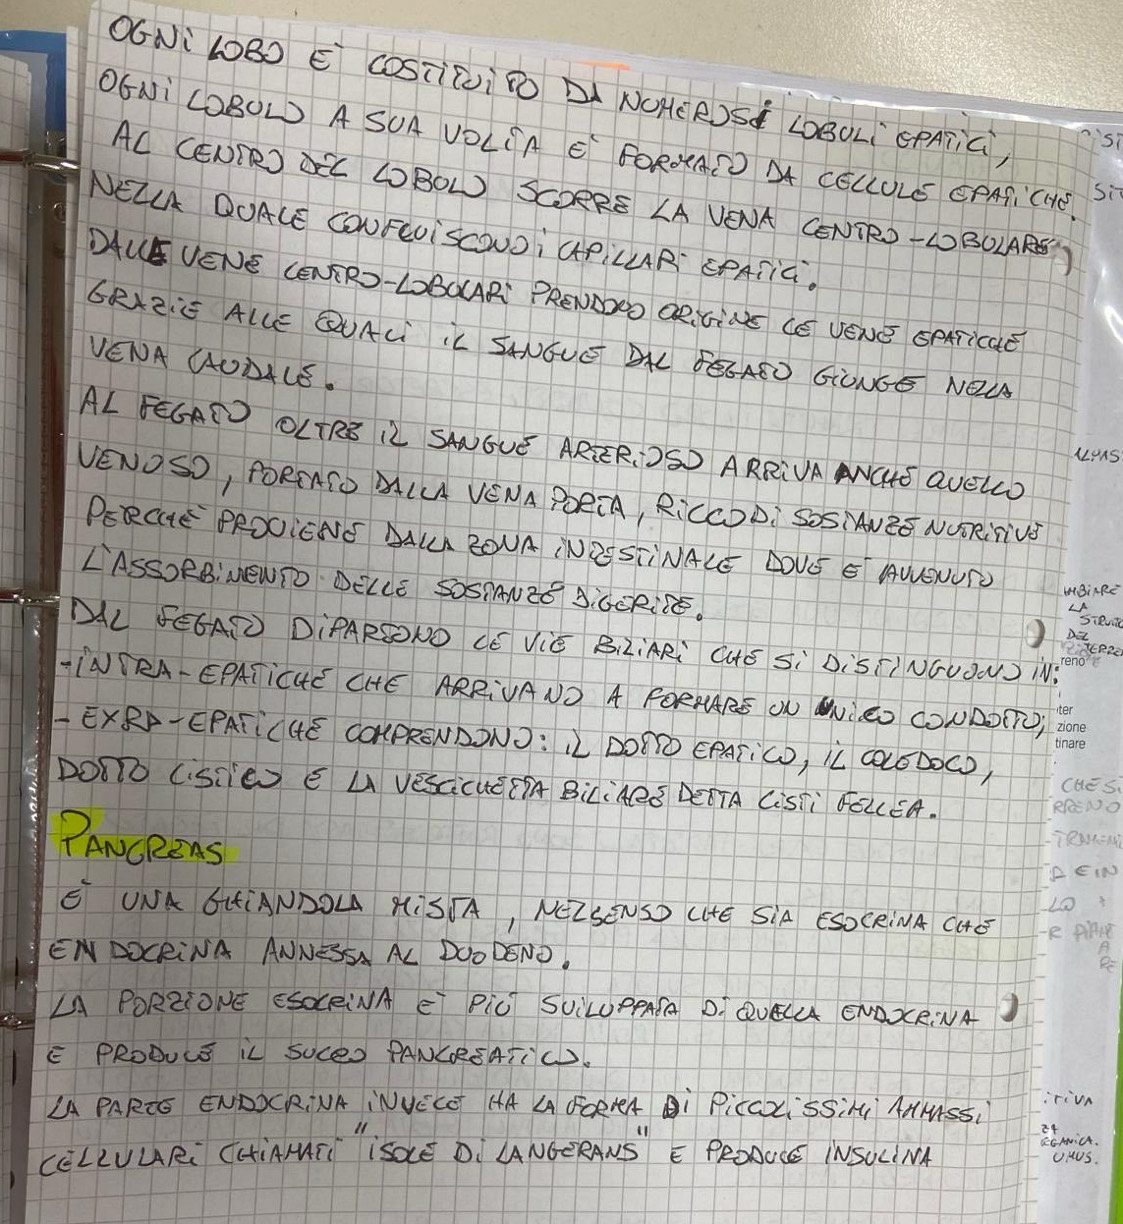 OGNI LOBO È COSTITUITO DA NUMEROSI LOBULI EPATICI,
OGNI LOBULO A SUA VOLTA È FORMATO DA CELLULE EPATICHE.
AL CENTRO DEL LOBULO SCORRE LA VENA CENTRO-LOBULARE
NELLA QUALE CONFLUISCONO I CAPILLARI EPATICI.
DALLE VENE CENTRO-LOBULARI PRENDONO ORIGINE LE VENE EPATICHE
GRAZIE ALLE QUALI IL SANGUE DAL FEGATO GIUNGE NELLA
VENA CAUDALE.
AL FEGATO OLTRE IL SANGUE ARTERIOSO ARRIVA ANCHE QUELLO
VENOSO, PORTATO DALLA VENA PORTA, RICCO DI SOSTANZE NUTRITIVE
PERCHÈ PROVIENE DALLA ZONA INTESTINALE DOVE È AVVENUTO
L'ASSORBIMENTO DELLE SOSTANZE DIGERITE.
DAL FEGATO DIPARTONO LE VIE BILIARI CHE SI DISTINGUONO IN:
-INTRA-EPATICHE CHE ARRIVANO A FORMARE UN UNICO CONDOTTO;
- EXRA-EPATICHE COMPRENDONO: IL DOTTO EPATICO, IL COLEDOCO,
DOTTO CISTICO E LA VESCICHETTA BILIARE DETTA CISTI FELLEA.
PANCREAS
È UNA GHIANDOLA MISTA, NEL SENSO CHE SIA ESOCRINA CHE
ENDOCRINA ANNESSA AL DUODENO.
LA PORZIONE ESOCRINA È PIÙ SVILUPPATA DI QUELLA ENDOCRINA
E PRODUCE IL SUCCO PANCREATICO.
LA PARTE ENDOCRINA INVECE HA LA FORMA DI PICCOLISSIMI AMMASSI
CELLULARI CHIAMATI "ISOLE DI LANGERANS" E PRODUCE INSULINA